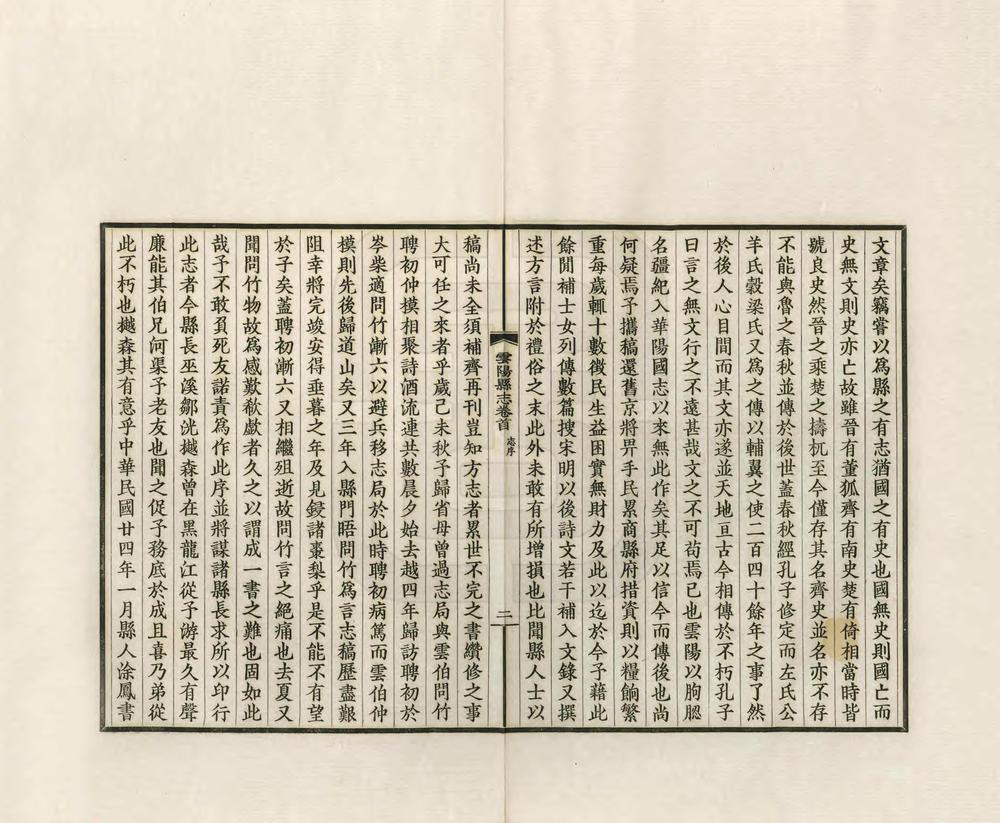 文章矣竊嘗以為縣之有志猶國之有史也國無史則國亡而
史無文則史亦亡故雖晉有董狐齊有南史楚有倚相當時皆
號良史然晉之乘楚之檮杌至今僅存其名齊史並名亦不存
不能與魯之春秋並傳於後世蓋春秋經孔子修定而左氏公
羊氏穀梁氏又為之傳以輔翼之使二百四十餘年之事了然
於後人心目間而其文亦遂並天地亘古今相傳於不朽孔子
曰言之無文行之不遠甚哉文之不可苟焉已也雲陽以朐䏰
名疆紀入華陽國志以來無此作矣其足以信今而傳後也尚
何疑焉予攜稿還舊京將畀手民累商縣府措資則以糧餉繁
重每歲輒十數徵民生益困實無財力及此以迄於今予藉此
餘閒補士女列傳數篇搜宋明以後詩文若干補入文錄又撰
述方言附於禮俗之末此外未敢有所增損也比聞縣人士以
雲陽縣志卷首 志序 二
稿尚未全須補齊再刊豈知方志者累世不完之書纘修之事
大可任之來者乎歲己未秋予歸省母曾過志局與雲伯問竹
聘初仲模相聚詩酒流連共數晨夕始去越四年歸訪聘初於
岑柴適問竹漸六以避兵移志局於此時聘初病篤而雲伯仲
模則先後歸道山矣又三年入縣門晤問竹為言志稿歷盡艱
阻幸將完竣安得垂暮之年及見鋟諸棗梨乎是不能不有望
於子矣蓋聘初漸六又相繼殂逝故問竹言之絕痛也去夏又
聞問竹物故為感歎欷歔者久之以謂成一書之難也固如此
哉予不敢負死友諾責為作此序並將謀諸縣長求所以印行
此志者今縣長巫溪鄒洸樾森曾在黑龍江從予游最久有聲
廉能其伯兄河渠予老友也聞之促予務底於成且喜乃弟從
此不朽也樾森其有意乎中華民國廿四年一月縣人涂鳳書